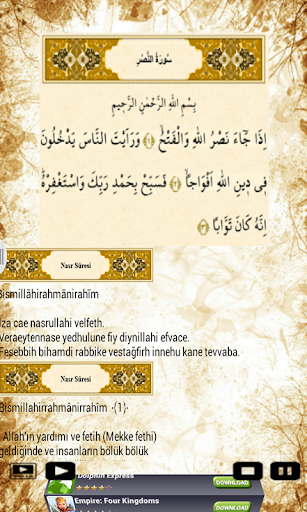 سُورَةُ النَّصْرِ
بِسْمِ اللهِ الرَّحْمٰنِ الرَّحٖيمِ
اِذَا جَٓاءَ نَصْرُ اللهِ وَالْفَتْحُۙ ﴿١﴾ وَرَاَيْتَ النَّاسَ يَدْخُلُونَ
فٖى دٖينِ اللهِ اَفْوَاجاًۙ ﴿٢﴾ فَسَبِّحْ بِحَمْدِ رَبِّكَ وَاسْتَغْفِرْهُۜ
اِنَّهُ كَانَ تَوَّاباً ﴿٣﴾
Nasr Sûresi
Bismillâhirahmânirahîm
İza cae nasrullahi velfeth.
Veraeytennase yedhulune fiy diynillahi efvace.
Fesebbih bihamdi rabbike vestağfirh innehu kane tevvaba.
Nasr Sûresi
Bismillâhirrahmânirrahîm ·(1)·
Allah'ın yardımı ve fetih (Mekke fethi)
geldiğinde ve insanların bölük bölük
Dolphin Express
DOWNLOAD
Empire: Four Kingdoms
DOWNLOAD